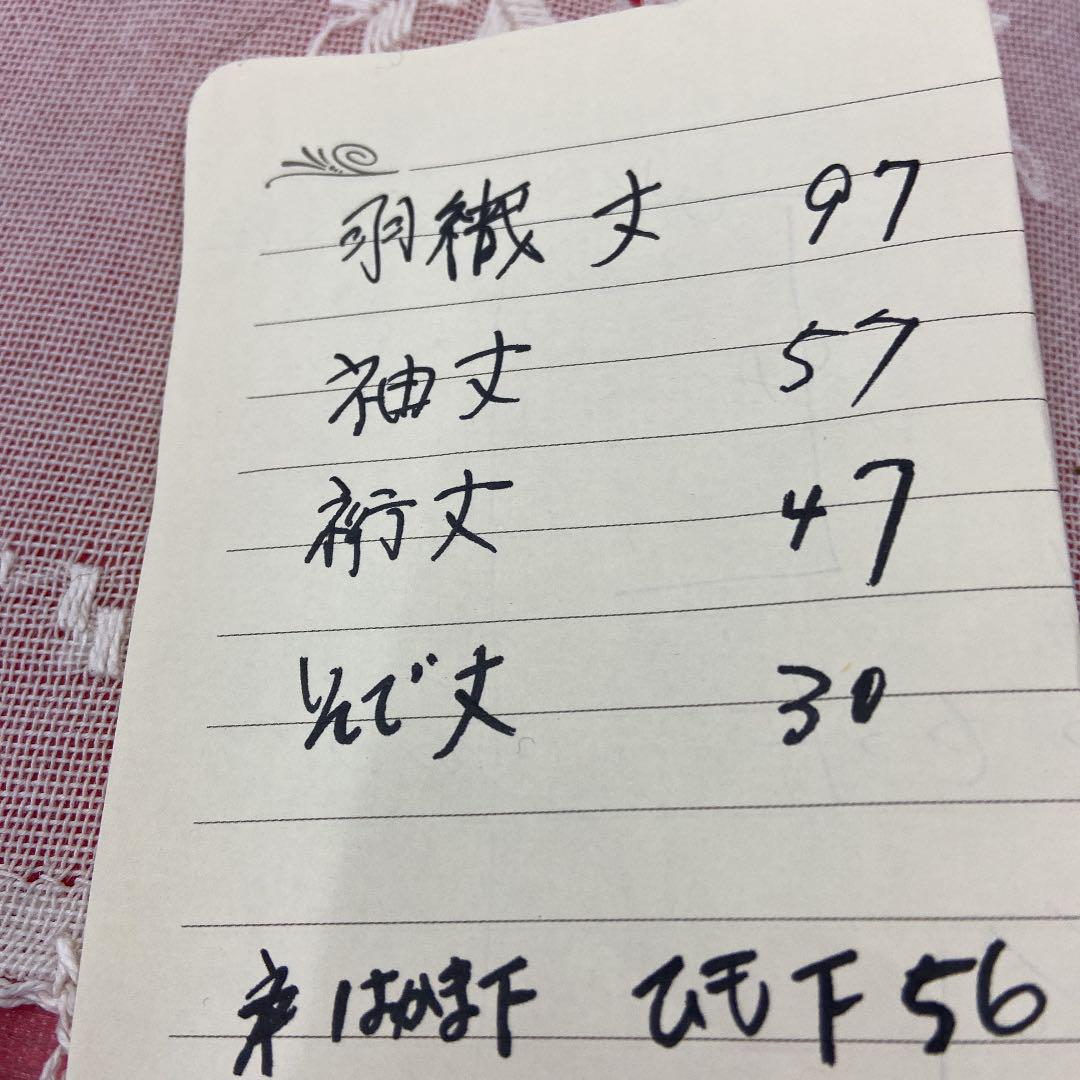 羽織丈 97
袖丈 57
裄丈 47
そで丈 30
はかま下 ひも下 56